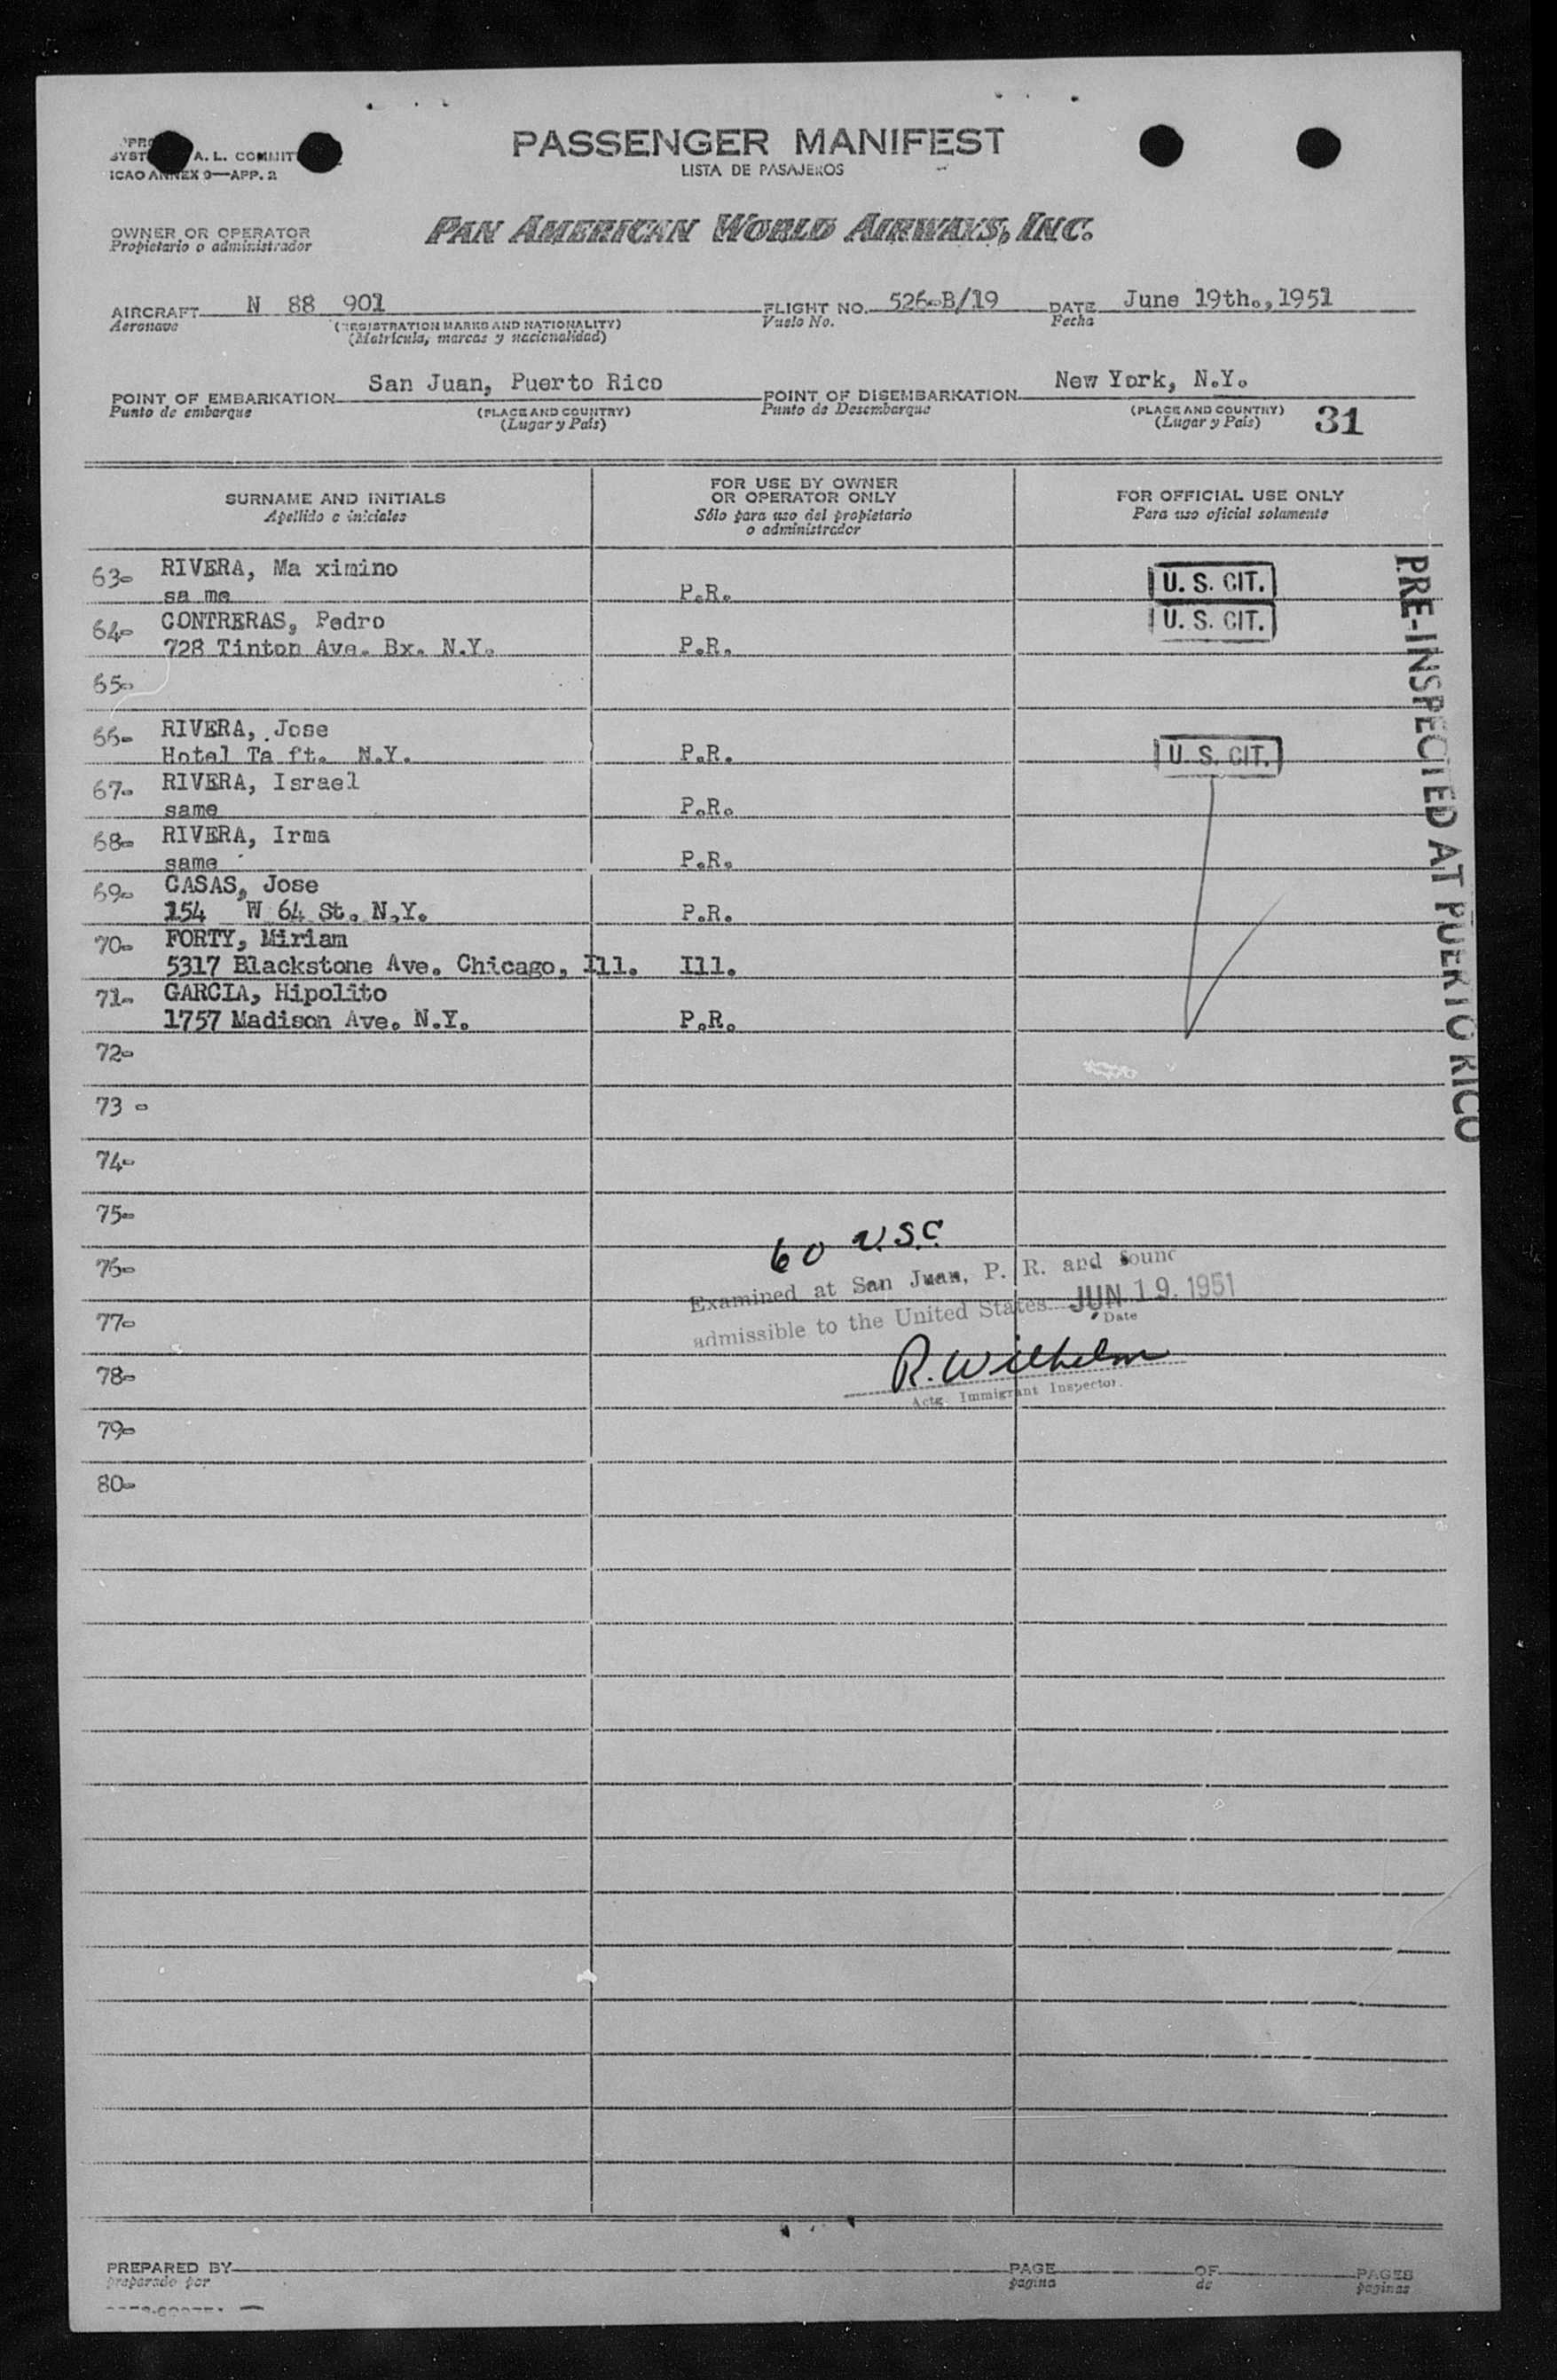 A. L. COMMIT
ICAO ANNEX 9—APP. 2
PASSENGER MANIFEST
LISTA DE PASAJEROS
OWNER OR OPERATOR
Propietario o administrador
PAN AMERICAN WORLD AIRWAYS, INC.
AIRCRAFT N 88 901 FLIGHT NO. 526-B/19 DATE June 19th., 1951
Aeronave (REGISTRATION MARKS AND NATIONALITY) Vuelo No. Fecha
(Matricula, marcas y nacionalidad)
POINT OF EMBARKATION San Juan, Puerto Rico POINT OF DISEMBARKATION New York, N.Y.
Punto de embarque (PLACE AND COUNTRY) Punto de Desembarque (PLACE AND COUNTRY)
(Lugar y País) (Lugar y País) 31
SURNAME AND INITIALS
Apellido e iniciales
FOR USE BY OWNER
OR OPERATOR ONLY
Sólo para uso del propietario
o administrador
FOR OFFICIAL USE ONLY
Para uso oficial solamente
63- RIVERA, Ma ximino
sa me P.R. U. S. CIT.
64- CONTRERAS, Pedro U. S. CIT.
728 Tinton Ave. Bx. N.Y. P.R.
65-
66- RIVERA, Jose
Hotel Ta ft. N.Y. P.R. U. S. CIT.
67- RIVERA, Israel
same P.R.
68- RIVERA, Irma
same P.R.
69- CASAS, Jose
154 W 64 St. N.Y. P.R.
70- FORTY, Miriam
5317 Blackstone Ave. Chicago, Ill. Ill.
71- GARCIA, Hipolito
1757 Madison Ave. N.Y. P.R.
72-
73 -
74-
75-
76-
77-
78-
79-
80-
PRE-INSPECTED AT PUERTO RICO
60 U.S.C.
Examined at San Juan, P. R. and found
admissible to the United States JUN 19. 1951
Date
R. Wilhelm
Actg. Immigrant Inspector.
PREPARED BY PAGE OF PAGES
preparado por pagina de paginas